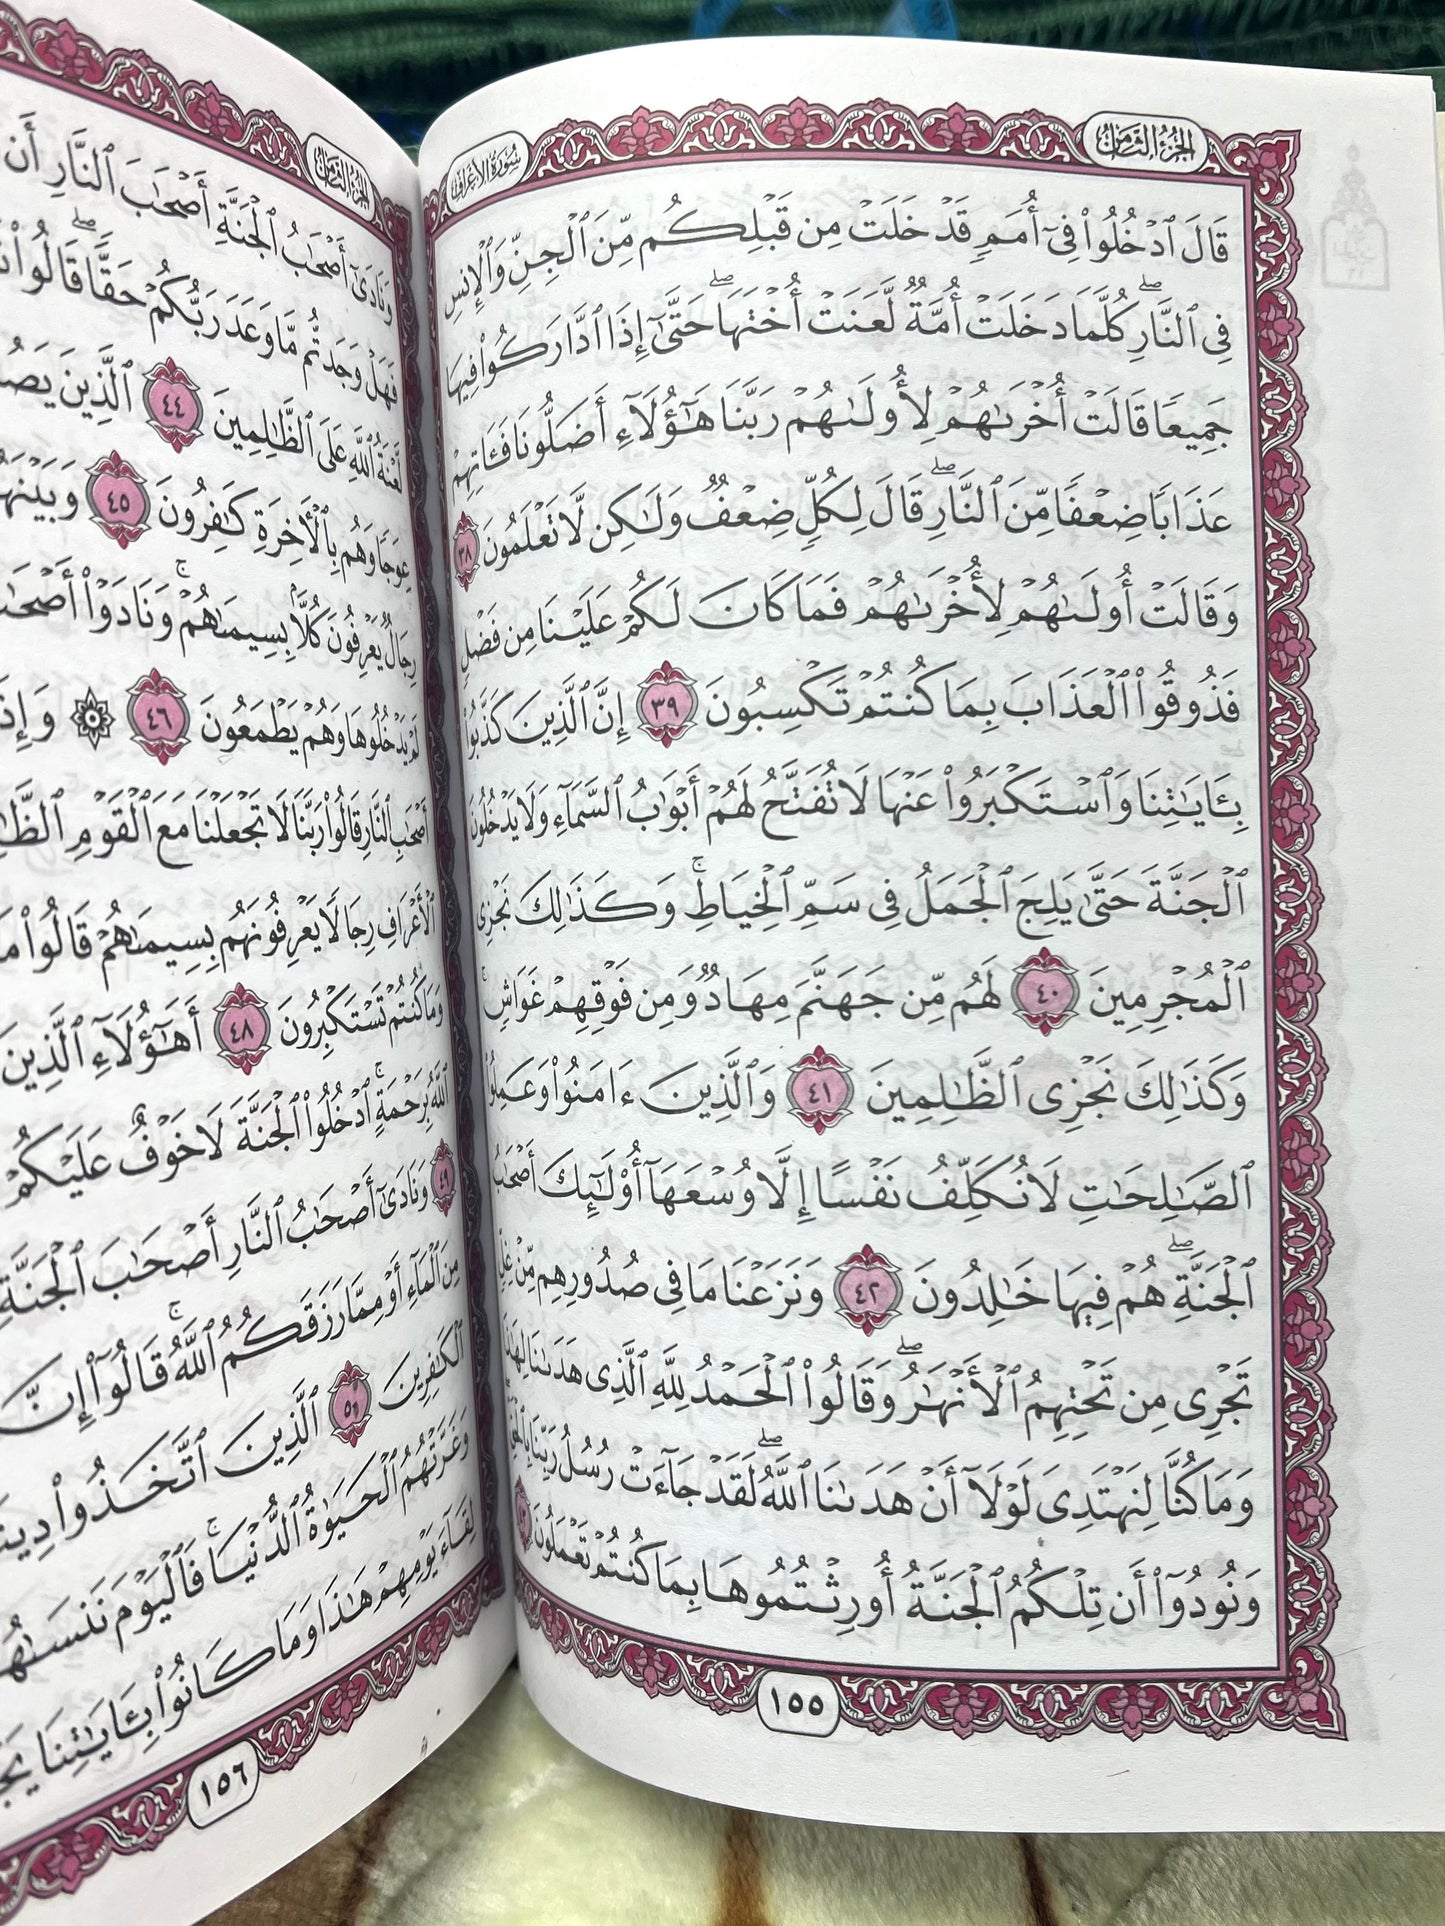 الجزء الثامن
سورة الأعراف
قَالَ ٱدْخُلُوا۟ فِىٓ أُمَمٍ قَدْ خَلَتْ مِن قَبْلِكُم مِّنَ ٱلْجِنِّ وَٱلْإِنسِ
فِى ٱلنَّارِ ۖ كُلَّمَا دَخَلَتْ أُمَّةٌ لَّعَنَتْ أُخْتَهَا ۖ حَتَّىٰٓ إِذَا ٱدَّارَكُوا۟ فِيهَا
جَمِيعًا قَالَتْ أُخْرَىٰهُمْ لِأُولَىٰهُمْ رَبَّنَا هَٰٓؤُلَآءِ أَضَلُّونَا فَـَٔاتِهِمْ
عَذَابًا ضِعْفًا مِّنَ ٱلنَّارِ ۖ قَالَ لِكُلٍّ ضِعْفٌ وَلَٰكِن لَّا تَعْلَمُونَ ٣٨
وَقَالَتْ أُولَىٰهُمْ لِأُخْرَىٰهُمْ فَمَا كَانَ لَكُمْ عَلَيْنَا مِن فَضْلٍ
فَذُوقُوا۟ ٱلْعَذَابَ بِمَا كُنتُمْ تَكْسِبُونَ ٣٩ إِنَّ ٱلَّذِينَ كَذَّبُوا۟
بِـَٔايَٰتِنَا وَٱسْتَكْبَرُوا۟ عَنْهَا لَا تُفَتَّحُ لَهُمْ أَبْوَٰبُ ٱلسَّمَآءِ وَلَا يَدْخُلُونَ
ٱلْجَنَّةَ حَتَّىٰ يَلِجَ ٱلْجَمَلُ فِى سَمِّ ٱلْخِيَاطِ ۚ وَكَذَٰلِكَ نَجْزِى
ٱلْمُجْرِمِينَ ٤٠ لَهُم مِّن جَهَنَّمَ مِهَادٌ وَمِن فَوْقِهِمْ غَوَاشٍ ۚ
وَكَذَٰلِكَ نَجْزِى ٱلظَّٰلِمِينَ ٤١ وَٱلَّذِينَ ءَامَنُوا۟ وَعَمِلُوا۟
ٱلصَّٰلِحَٰتِ لَا نُكَلِّفُ نَفْسًا إِلَّا وُسْعَهَآ أُو۟لَٰٓئِكَ أَصْحَٰبُ
ٱلْجَنَّةِ ۖ هُمْ فِيهَا خَٰلِدُونَ ٤٢ وَنَزَعْنَا مَا فِى صُدُورِهِم مِّنْ غِلٍّ
تَجْرِى مِن تَحْتِهِمُ ٱلْأَنْهَٰرُ ۖ وَقَالُوا۟ ٱلْحَمْدُ لِلَّهِ ٱلَّذِى هَدَىٰنَا لِهَٰذَا
وَمَا كُنَّا لِنَهْتَدِىَ لَوْلَآ أَنْ هَدَىٰنَا ٱللَّهُ ۖ لَقَدْ جَآءَتْ رُسُلُ رَبِّنَا بِٱلْحَقِّ ۖ
وَنُودُوٓا۟ أَن تِلْكُمُ ٱلْجَنَّةُ أُورِثْتُمُوهَا بِمَا كُنتُمْ تَعْمَلُونَ ٤٣
١٥٥
الجزء الثامن
وَنَادَىٰٓ أَصْحَٰبُ ٱلْجَنَّةِ أَصْحَٰبَ ٱلنَّارِ أَن
فَهَلْ وَجَدتُّم مَّا وَعَدَ رَبُّكُمْ حَقًّا ۖ قَالُوا۟
لَّعْنَةُ ٱللَّهِ عَلَى ٱلظَّٰلِمِينَ ٤٤ ٱلَّذِينَ
عِوَجًا وَهُم بِٱلْءَاخِرَةِ كَٰفِرُونَ ٤٥
رِجَالٌ يَعْرِفُونَ كُلًّۢا بِسِيمَىٰهُمْ ۚ وَنَادَوْا۟
لَمْ يَدْخُلُوهَا وَهُمْ يَطْمَعُونَ ٤٦ ۞
أَصْحَٰبِ ٱلنَّارِ قَالُوا۟ رَبَّنَا لَا تَجْعَلْنَا مَعَ ٱلْقَوْمِ
ٱلْأَعْرَافِ رِجَالًا يَعْرِفُونَهُم بِسِيمَىٰهُمْ قَالُوا۟
وَمَا كُنتُمْ تَسْتَكْبِرُونَ ٤٨ أَهَٰٓؤُلَآءِ ٱلَّذِينَ
ٱللَّهُ بِرَحْمَةٍ ۚ ٱدْخُلُوا۟ ٱلْجَنَّةَ لَا خَوْفٌ عَلَيْكُمْ
٤٩ وَنَادَىٰٓ أَصْحَٰبُ ٱلنَّارِ أَصْحَٰبَ ٱلْجَنَّةِ
مِنَ ٱلْمَآءِ أَوْ مِمَّا رَزَقَكُمُ ٱللَّهُ ۚ قَالُوٓا۟ إِنَّ
ٱلْكَٰفِرِينَ ٥٠ ٱلَّذِينَ ٱتَّخَذُوا۟
وَغَرَّتْهُمُ ٱلْحَيَوٰةُ ٱلدُّنْيَا ۚ فَٱلْيَوْمَ
لِقَآءَ يَوْمِهِمْ هَٰذَا وَمَا كَانُوا۟ بِـَٔايَٰتِنَا
١٥٦